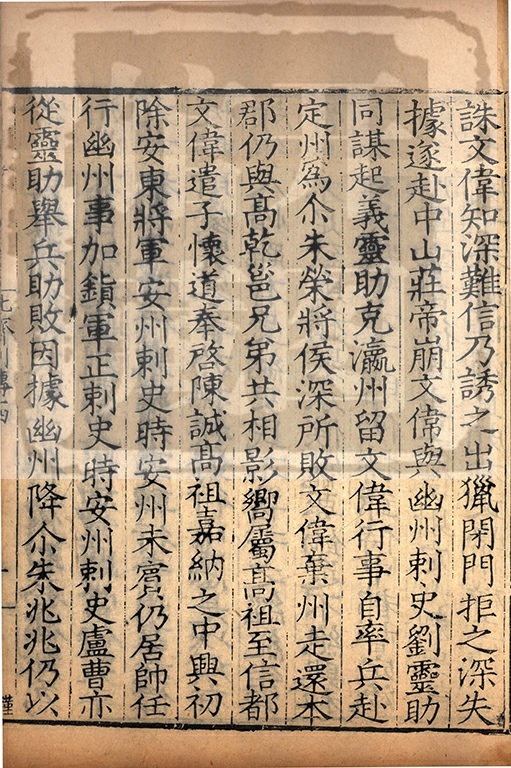 誅文偉知深難信乃誘之出獵閉門拒之深失
據遂赴中山莊帝崩文偉與幽州刺史劉靈助
同謀起義靈助克瀛州留文偉行事自率兵赴
定州爲尒朱榮將侯深所敗文偉棄州走還本
郡仍與髙乾邕兄弟共相影嚮屬髙祖至信都
文偉遣子懷道奉啓陳誠髙祖嘉納之中興初
除安東將軍安州刺史時安州未賓仍居帥任
行幽州事加鎮軍正刺史時安州刺史盧曹亦
從靈助舉兵助敗因據幽州降尒朱兆兆仍以
北齊列傳四